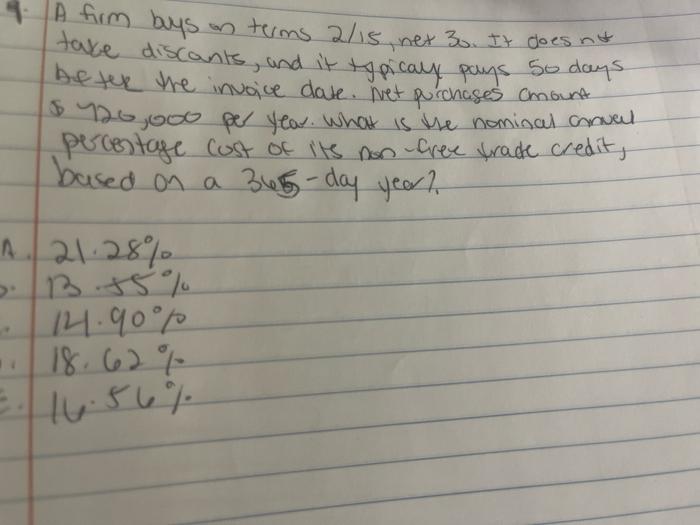 9. A firm buys on terms 2/15, net 30. It does not
take discounts, and it typicaly pays 50 days
after the invoice date. Net purchases amount
$720,000 per year. What is the nominal annual
percentage cost of its non-free trade credit,
based on a 365-day year?
A. 21.28%
13.55%
14.90%
18.62%
E. 16.56%